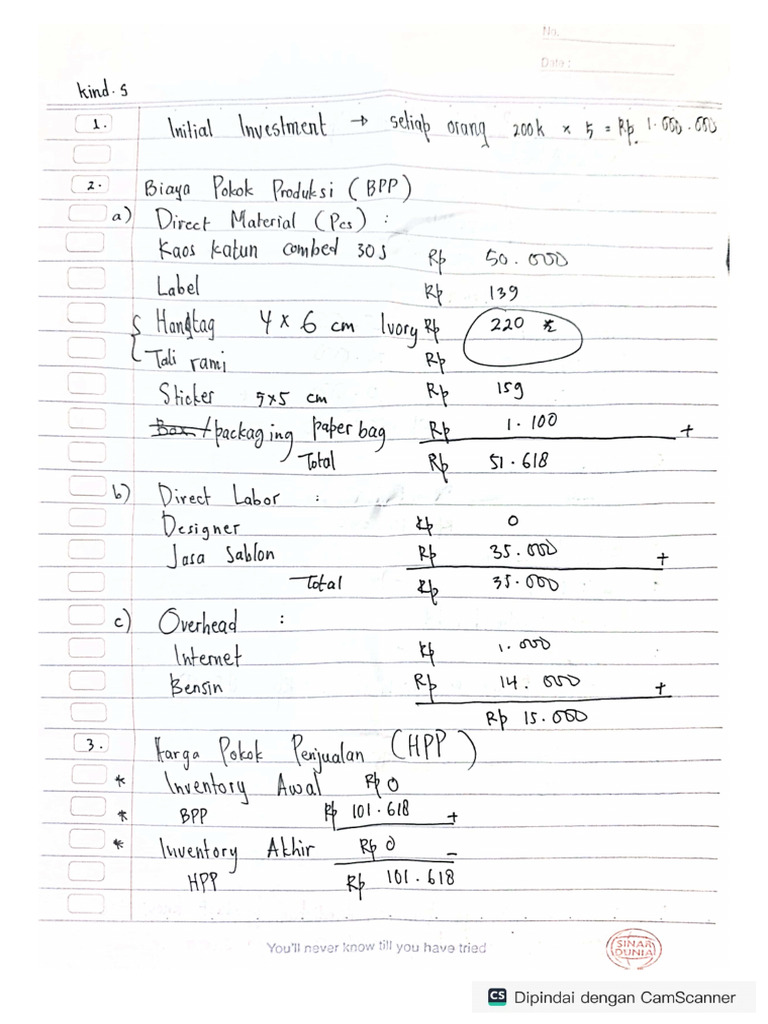 No.
Date :
kind.s
1. Initial Investment → setiap orang 200k x 5 = Rp 1.000.000
2. Biaya Pokok Produksi (BPP)
a) Direct Material (Pcs) :
Kaos katun combed 30s Rp 50.000
Label Rp 139
Hangtag 4 x 6 cm Ivory Rp 220
Tali rami Rp
Sticker 5x5 cm Rp 159
Box / packaging paper bag Rp 1.100 +
Total Rp 51.618
b) Direct Labor :
Designer Rp 0
Jasa Sablon Rp 35.000 +
Total Rp 35.000
c) Overhead :
Internet Rp 1.000
Bensin Rp 14.000 +
Rp 15.000
3. Harga Pokok Penjualan (HPP)
* Inventory Awal Rp 0
* BPP Rp 101.618 +
* Inventory Akhir Rp 0 -
HPP Rp 101.618
You'll never know till you have tried
SINAR
DUNIA
CS Dipindai dengan CamScanner